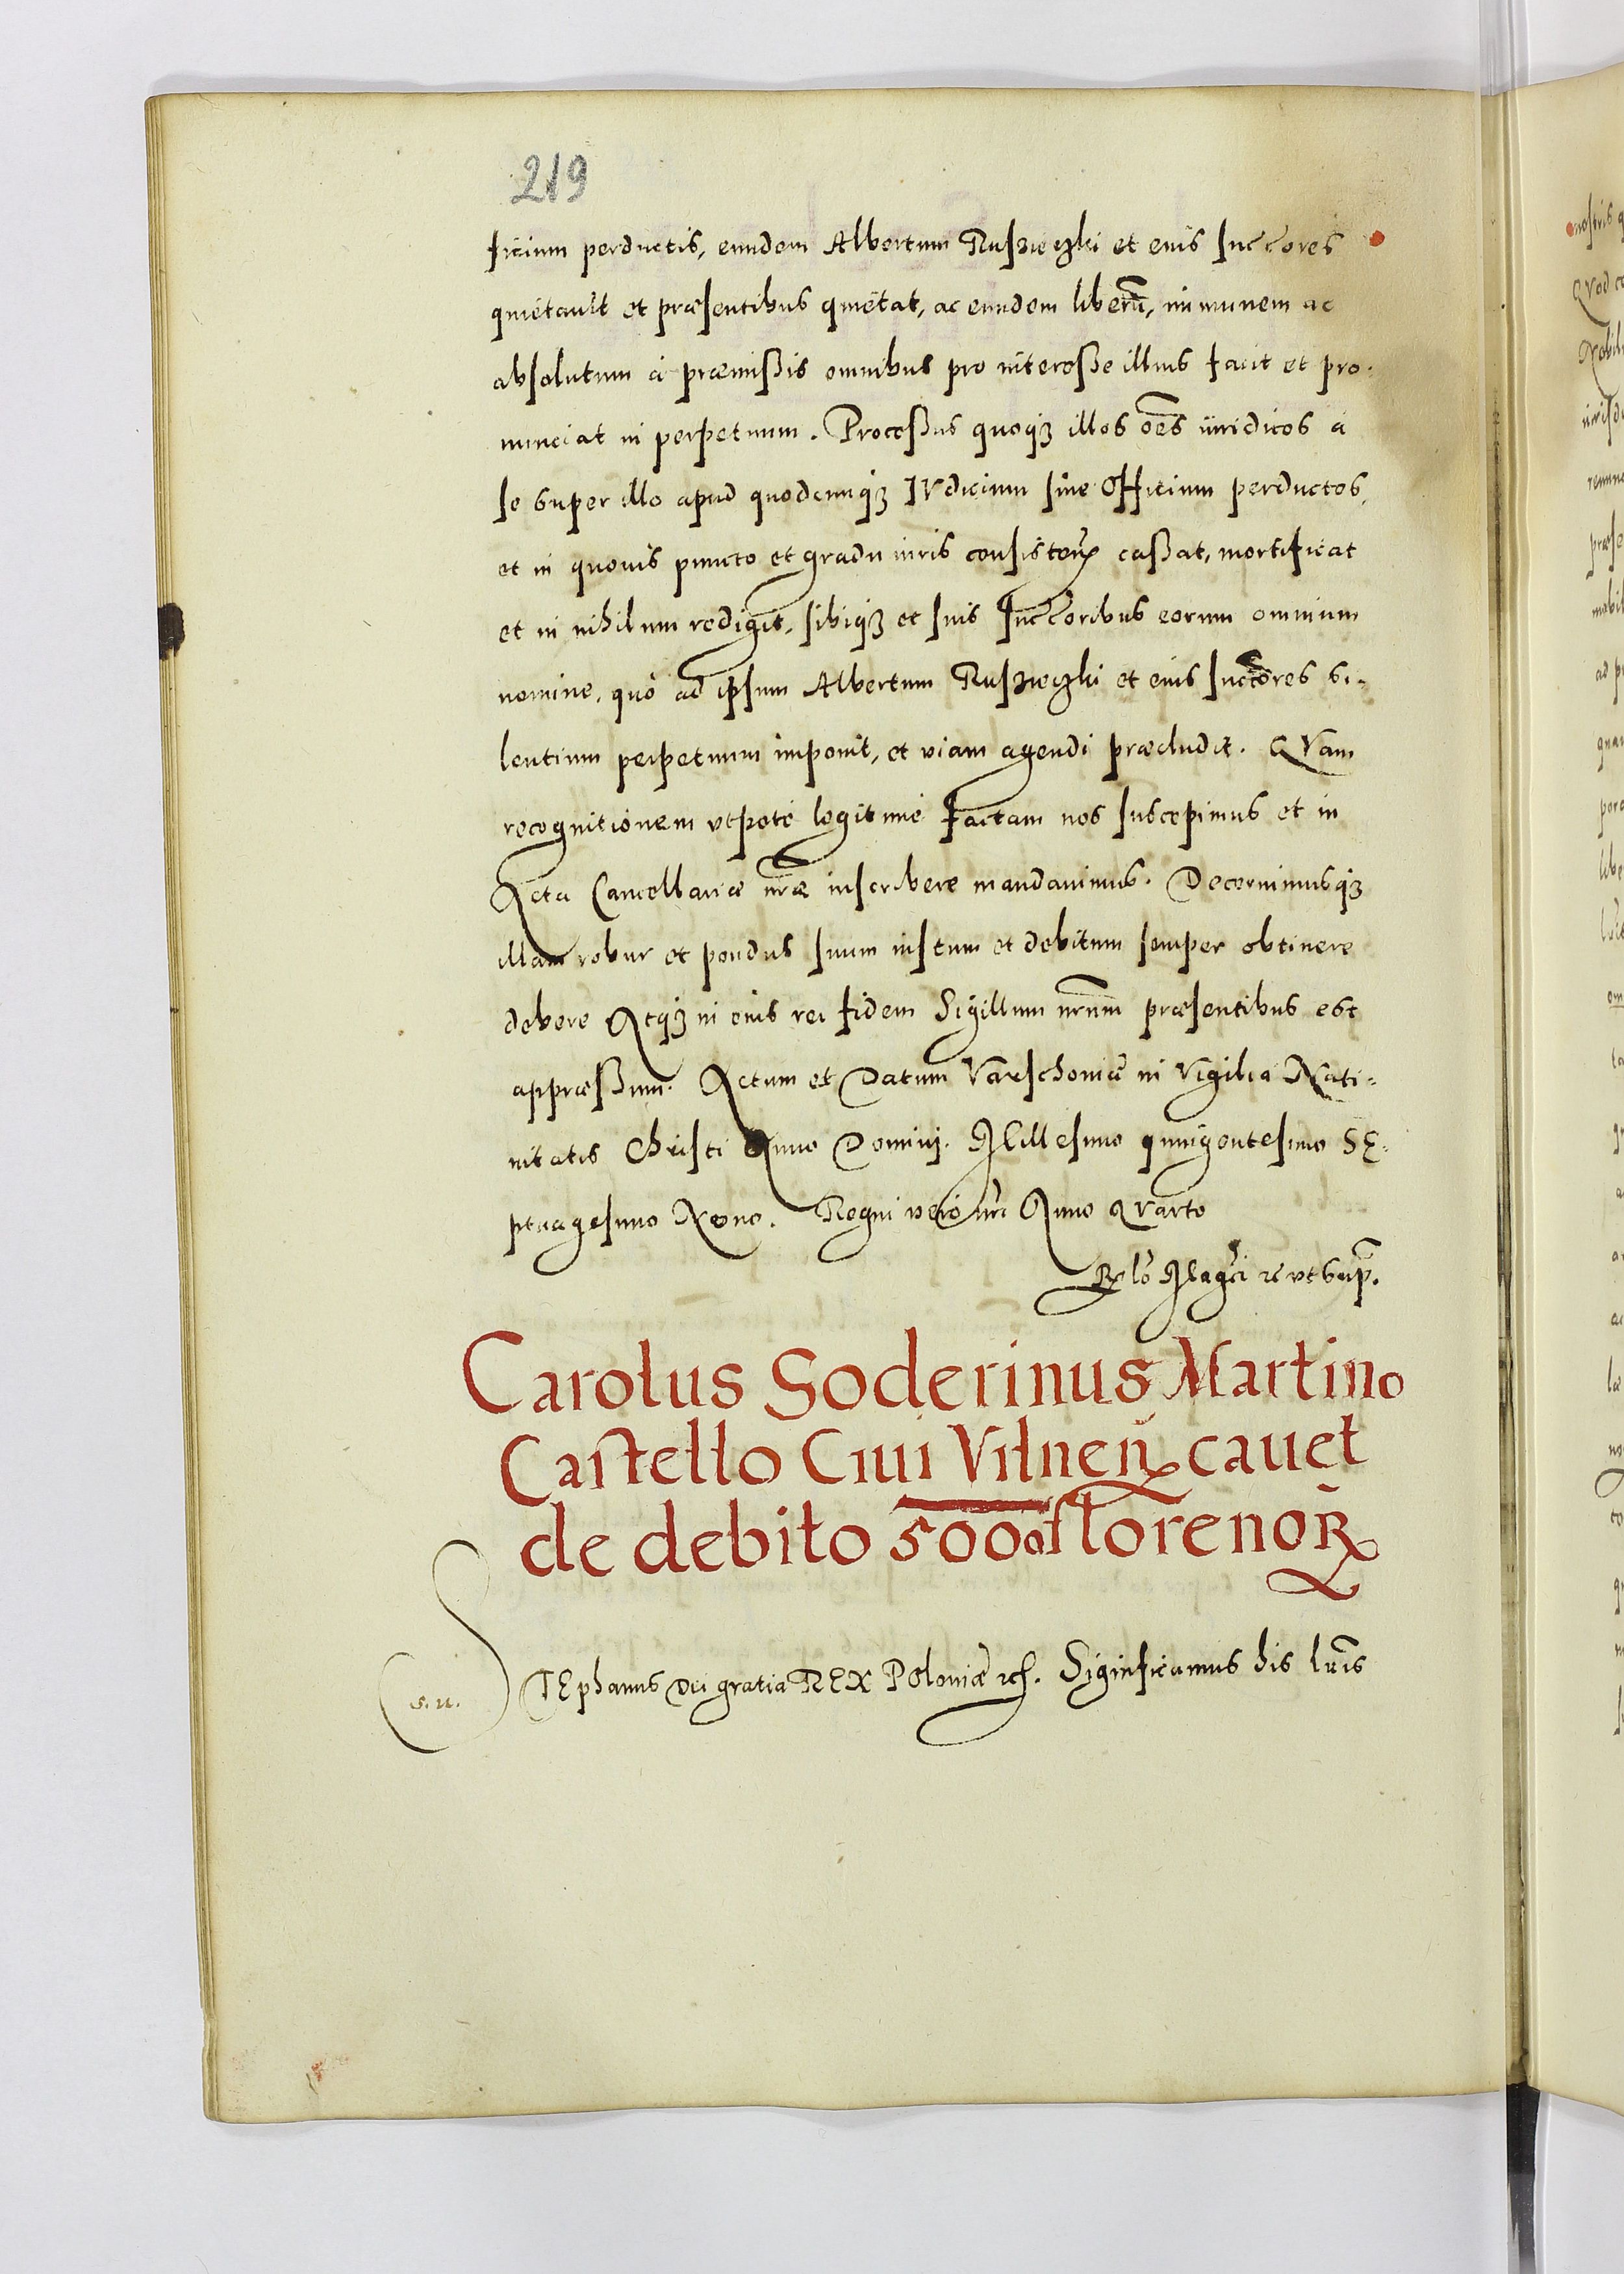 219
ficium perductis, eundem Albertum Ruszieczki et eius succores
quietauit et præsentibus quietat, ac eundem liberũ, immunem ac
absolutum á præmissis omnibus pro interesse illius facit et pro-
nunciat in perpetuum. Processus quoq3 illos oẽs iuridicos á
se super illo apud quodcunq3 IVdicium siue OFficium perductos,
et in quouis puncto et gradu iuris consisten̄ cassat, mortificat
et in nihilum redigit, sibiq3 et suis succoribus eorum omnium
nomine, quó ad ipsum Albertum Ruszieczki et eius succores si-
lentium perpetuum imponit, et viam agendi præcludit. QVam
recognitionem vtpoté legitimé factam nos suscepimus et in
Acta Cancellariæ nr̃æ inscribere mandauimus. Decernimusq3
illam robur et pondus suum iustum et debitum semper obtinere
debere Atq3 in eius rei fidem Sigillum nr̃um præsentibus est
appræssum. Actum et Datum Varschouiæ in Vigilia Nati-
uitatis Christi Anno Dominj. Millesimo quingentesimo SE-
ptuagesimo Nono. Regni veró nr̃i Anno QVarto
Rlo Magci rc vt supr̃.
Carolus Soderinus Martino
Castello Ciui Vilnen̄ cauet
de debito 5000 florenor̃
s. u.
STEphanus Dei gratia REX Poloniæ rc. Significamus his lr̃is
nostris
QVod